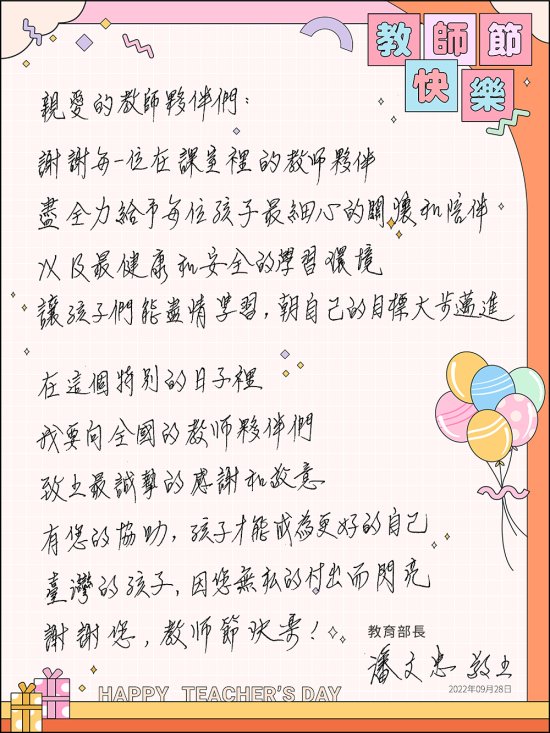 教師節
快樂
親愛的教師夥伴們：
謝謝每一位在課室裡的教師夥伴
盡全力給予每位孩子最細心的關懷和陪伴
以及最健康和安全的學習環境
讓孩子們能盡情學習，朝自己的目標大步邁進
在這個特別的日子裡
我要向全國的教師夥伴們
致上最誠摯的感謝和敬意
有您的協助，孩子才能成為更好的自己
臺灣的孩子，因您無私的付出而閃亮
謝謝您，教師節快樂！
教育部長
潘文忠 敬上
2022年09月28日
HAPPY TEACHER'S DAY